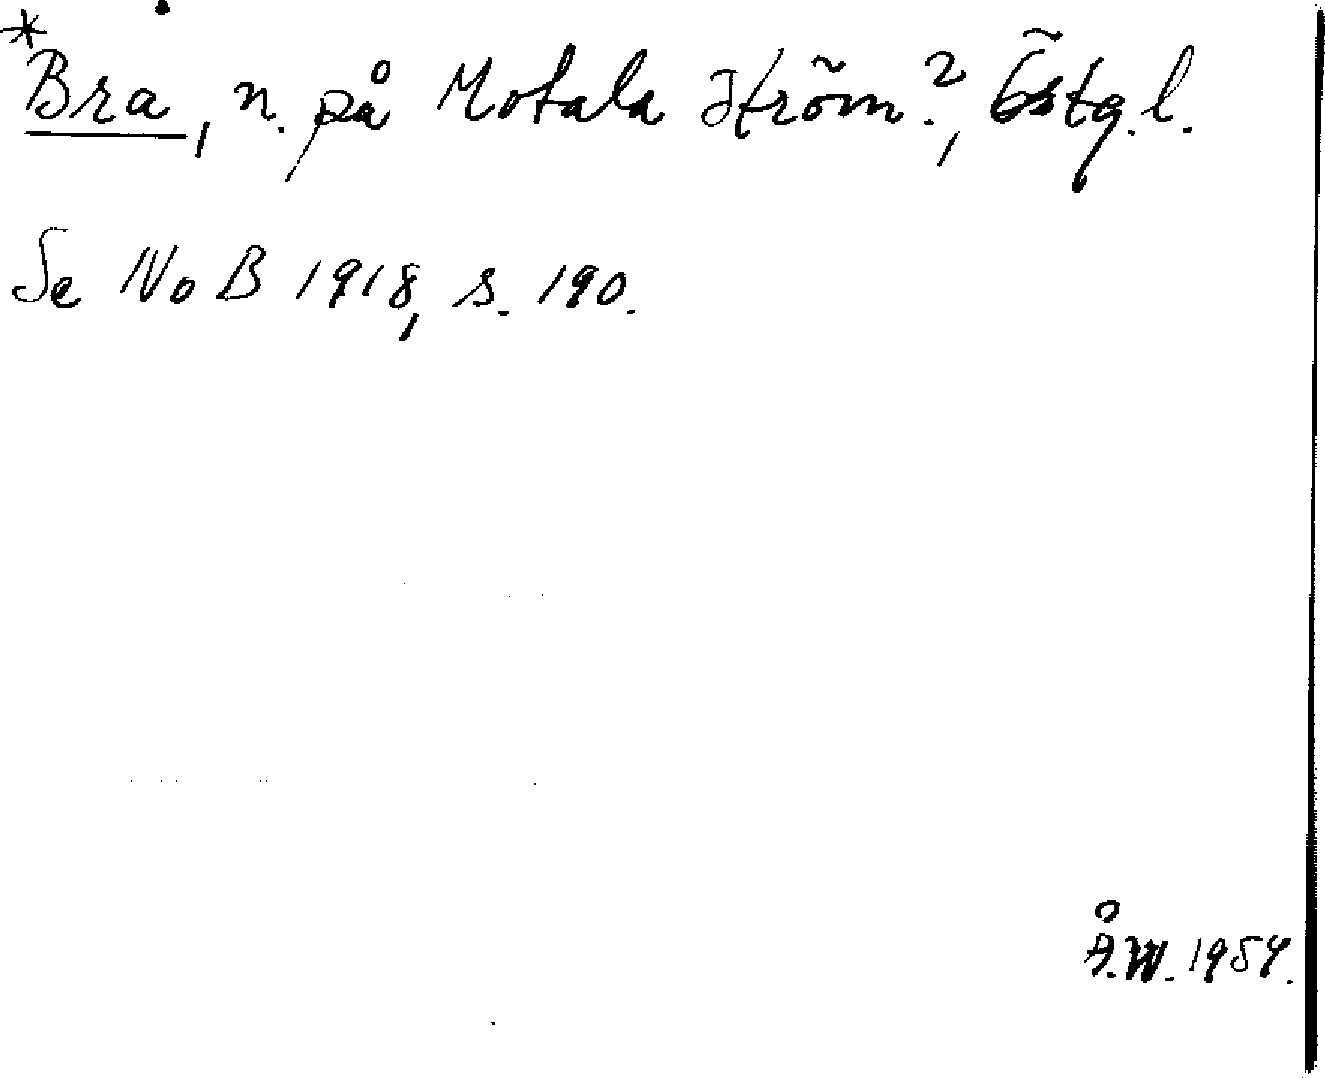 *Bra, n. på Motala Ström?, Östg.l.
Se NoB 1918, s. 190.
Å.W. 1954.